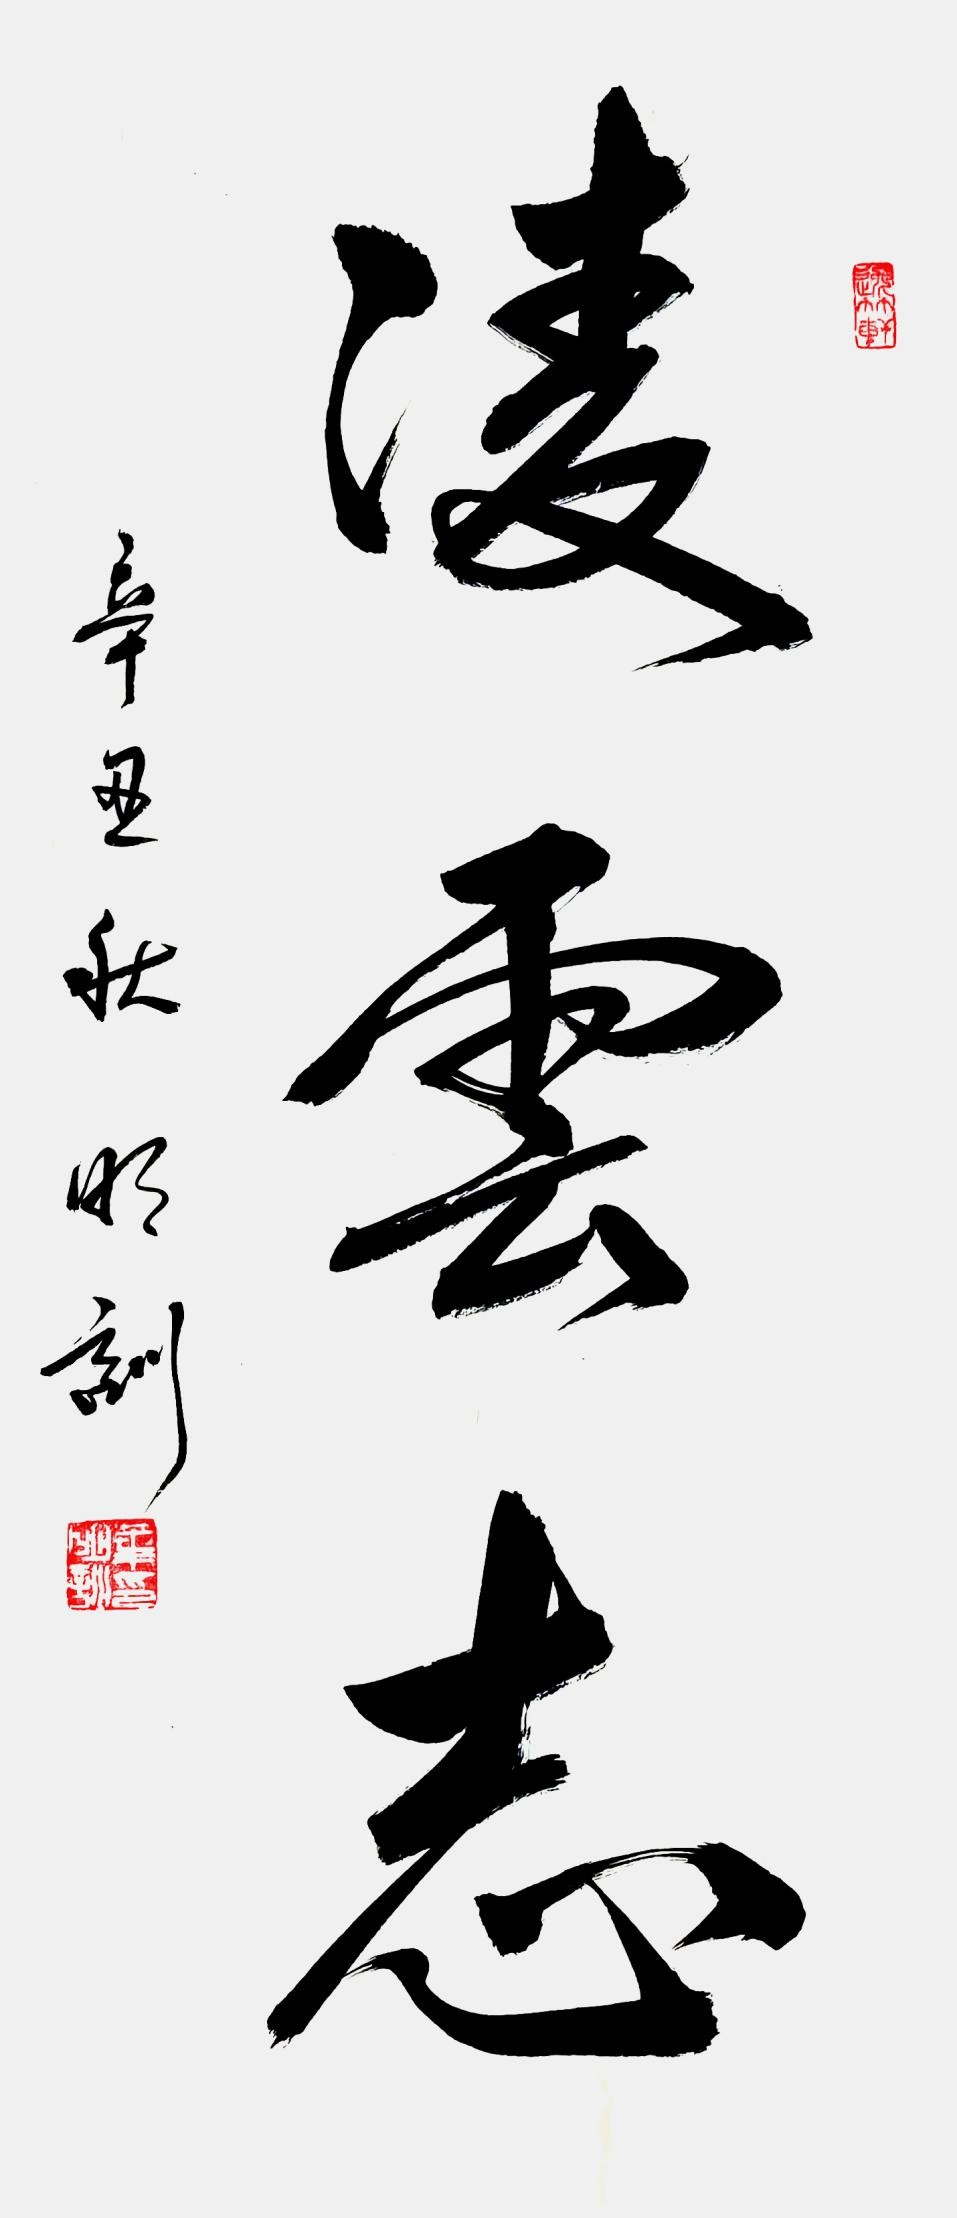 凌雲志
辛丑秋 明訓